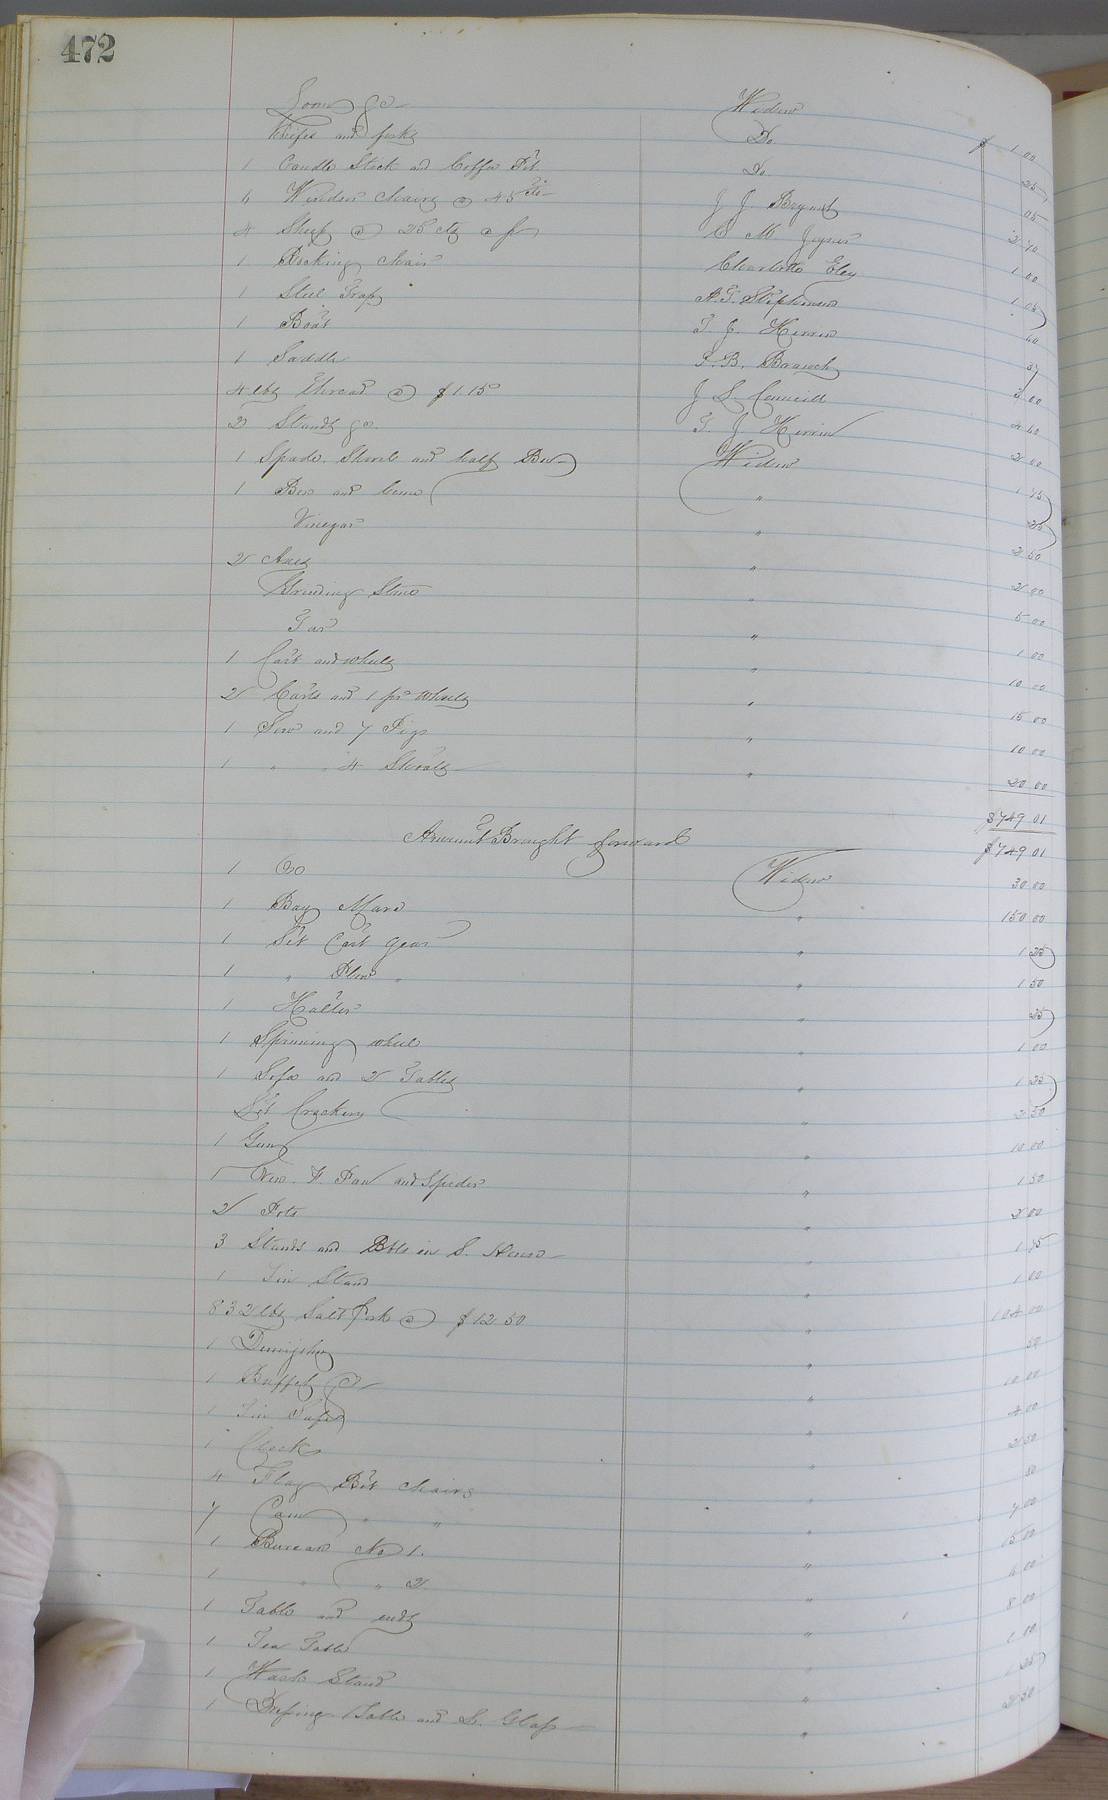 472
Loom &c Widow $ 1 00
Knifes and forks Do. 25
1 Candle Stick and Coffee Pot Do. 05
6 Windsor Chairs @ 45 cts J. J. Bryant 2 70
4 Sheep @ 25 cts M Joyner 1 00
1 Rocking Chair Charlotte Eley 1 05
1 Steel Trap A. T. Stephenson 60
1 Boat T J. Herrin 37
1 Saddle P. B. Branch 3 00
4 lbs Thread @ $1.15 J S. Councill 4 60
2 Stands &c. T. J. Herrin 2 00
1 Spade. Shovel and half Widow 1 75
1 Box and " 25
Vinegar " 2 50
2 Axes " 2 00
Grinding Stone " 5 00
Tar " 1 00
1 Cart and wheels " 10 00
2 Carts and 1 pr wheels " 15 00
1 Sow and 7 Pigs " 10 00
1 " " 4 Shoats " 20 00
$749 01
Amount Brought forward $749 01
1 Ox Widow 30 00
1 Bay Mare " 150 00
1 Set Cart Gear " 1 25
1 " Plow " " 1 50
1 Halter " 25
1 Spinning wheel " 1 00
1 Sofa and 2 Tables " 1 25
Set Crockery " 2 50
1 Gun " 10 00
1 Pan and Spider " 1 50
2 Pots " 2 00
3 Stands and Bbls in S. House " 1 75
1 Tin Stand " 1 00
832 lbs Salt Pork @ $12 50 " 104 00
1 Demijohn " 50
1 Buffet &c " 10 00
1 Tin Safe " 4 00
1 Clock " 2 50
4 Flag Bot Chairs " 50
7 Cane " " " 7 00
1 Bureau No 1. " 15 00
1 " " 2 " 6 00
1 Table and ends " 8 00
1 Tea Table " 1 00
1 Wash Stand " 1 25
1 Dressing Table and L. Glass " 2 50